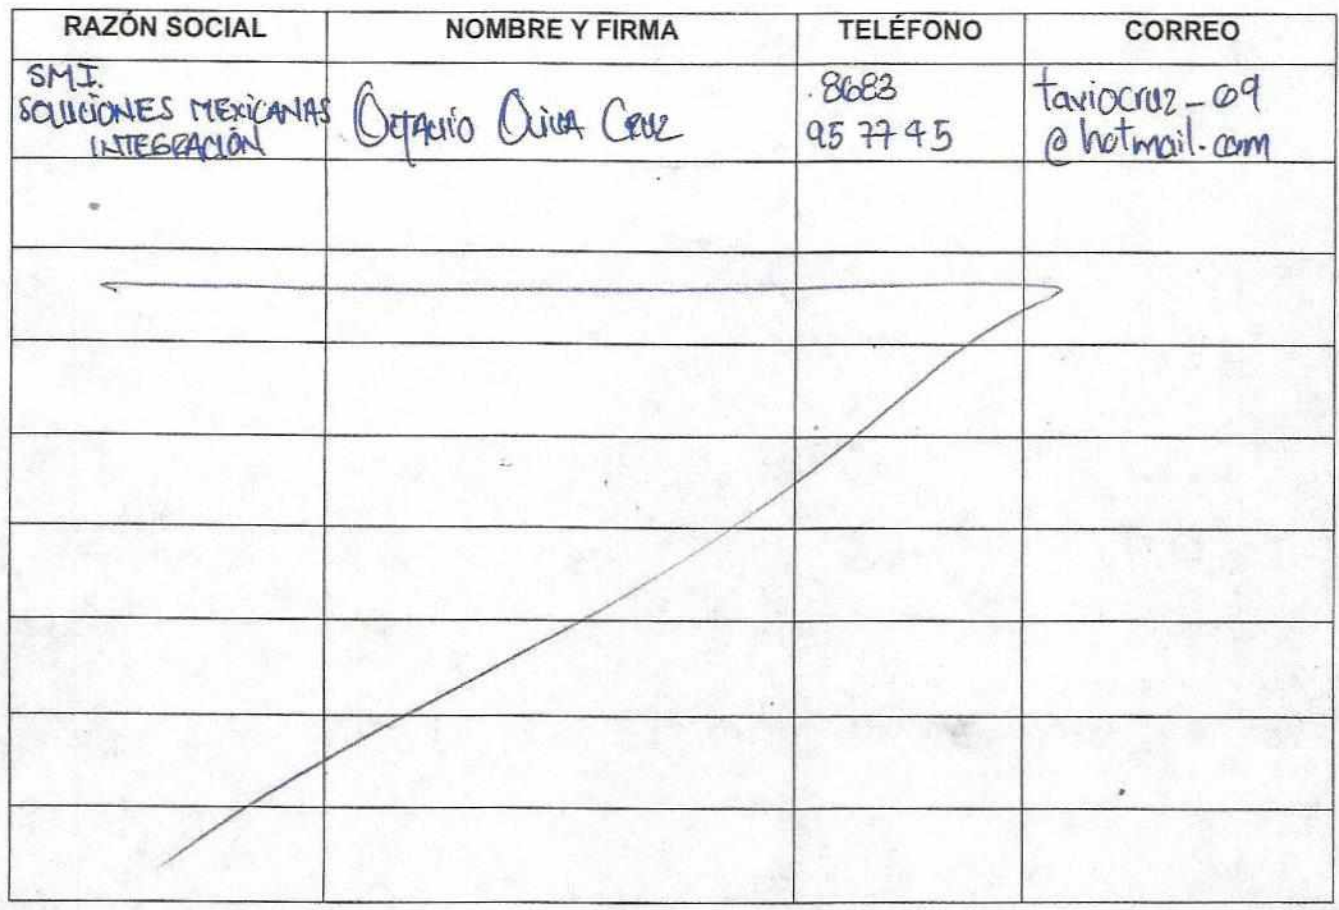 RAZÓN SOCIAL NOMBRE Y FIRMA TELÉFONO CORREO
SMI.
SOLUCIONES MEXICANAS
INTEGRACIÓN
Octavio Oliva Cruz
8683
957745
taviocruz_09
@hotmail.com